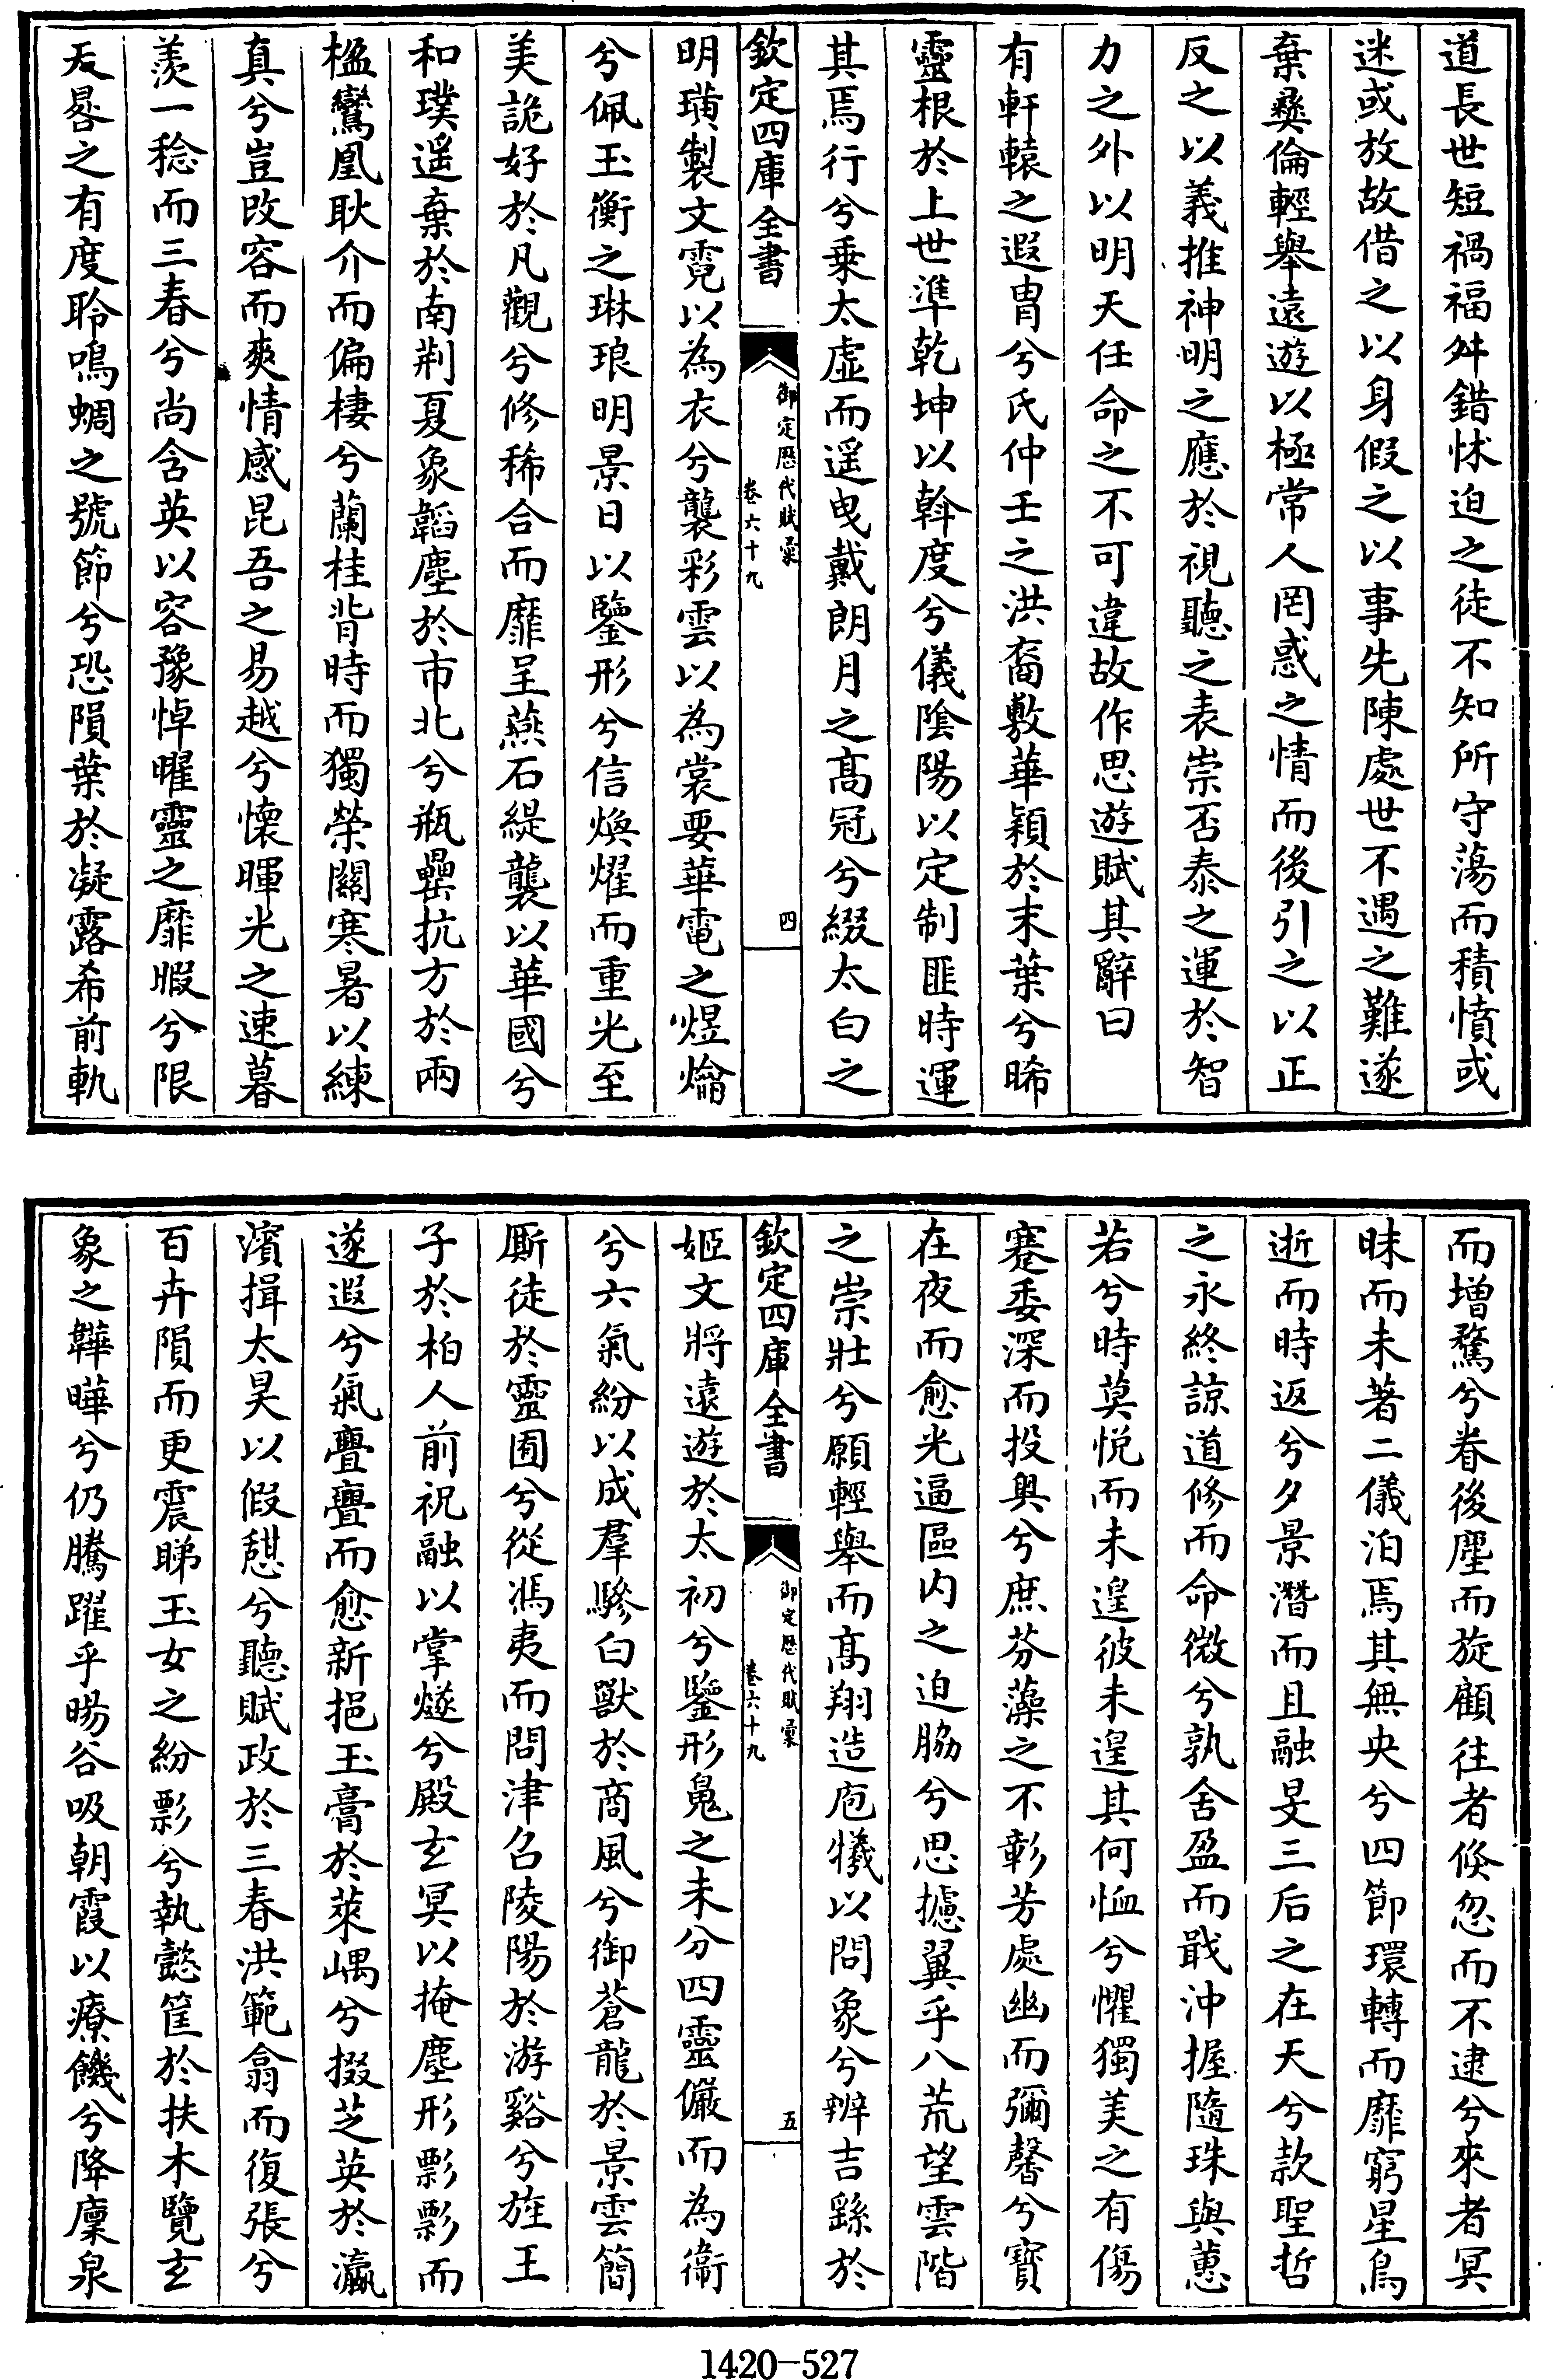 道長世短禍福舛錯怵迫之徒不知所守蕩而積憤或
迷或放故借之以身假之以事先陳處世不遇之難遂
棄彝倫輕舉遠遊以極常人罔惑之情而後引之以正
反之以義推神明之應於視聽之表崇否泰之運於智
力之外以明天任命之不可違故作思遊賦其辭曰
有軒轅之遐胄兮氏仲壬之洪裔敷華穎於末葉兮晞
靈根於上世準乾坤以斡度兮儀陰陽以定制匪時運
其焉行兮乗太虛而遥曳戴朗月之髙冠兮綴太白之
欽定四庫全書
御定歴代賦彙
卷六十九
四
明璜製文霓以為衣兮襲彩雲以為裳要華電之煜爚
兮佩玉衡之琳琅明景日以鑒形兮信煥燿而重光至
美詭好於凡觀兮修稀合而靡呈燕石緹襲以華國兮
和璞遥棄於南荆夏象韜塵於市北兮瓶罍抗方於兩
楹鸞凰耿介而偏棲兮蘭桂背時而獨榮關寒暑以練
真兮豈改容而爽情感昆吾之易越兮懷暉光之速暮
羨一稔而三春兮尚含英以容豫悼曜靈之靡暇兮限
天晷之有度聆鳴蜩之號節兮恐隕葉於凝露希前軌
而增騖兮眷後塵而旋顧往者倏忽而不逮兮來者冥
昧而未著二儀泊焉其無央兮四節環轉而靡窮星鳥
逝而時返兮夕景潛而且融旻三后之在天兮款聖哲
之永終諒道修而命微兮孰舍盈而戢沖握隨珠與蕙
若兮時莫悅而未遑彼未遑其何恤兮懼獨美之有傷
蹇委深而投奥兮庶芬藻之不彰芳處幽而彌馨兮寳
在夜而愈光逼區内之迫脇兮思攄翼乎八荒望雲階
之崇壯兮願輕舉而髙翔造庖犧以問象兮辨吉繇於
欽定四庫全書
御定歴代賦彙
卷六十九
五
姬文將遠遊於太初兮鑒形鬼之未分四靈儼而為衞
兮六氣紛以成羣驂白獸於商風兮御蒼龍於景雲簡
厮徒於靈圉兮從馮夷而問津召陵陽於游谿兮旌王
子於柏人前祝融以掌燧兮殿玄冥以掩塵形影影而
遂遐兮氣亹亹而愈新挹玉膏於萊嵎兮掇芝英於瀛
濱揖太昊以假憩兮聽賦政於三春洪範翕而復張兮
百卉隕而更震睇玉女之紛影兮執懿筐於扶木覽玄
象之韡曄兮仍騰躍乎暘谷吸朝霞以療饑兮降廩泉
1420-527